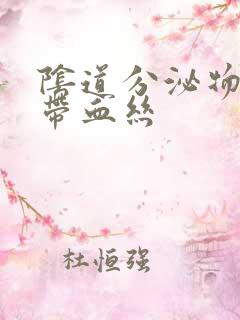 陰道分泌物
帶血絲
杜恒强